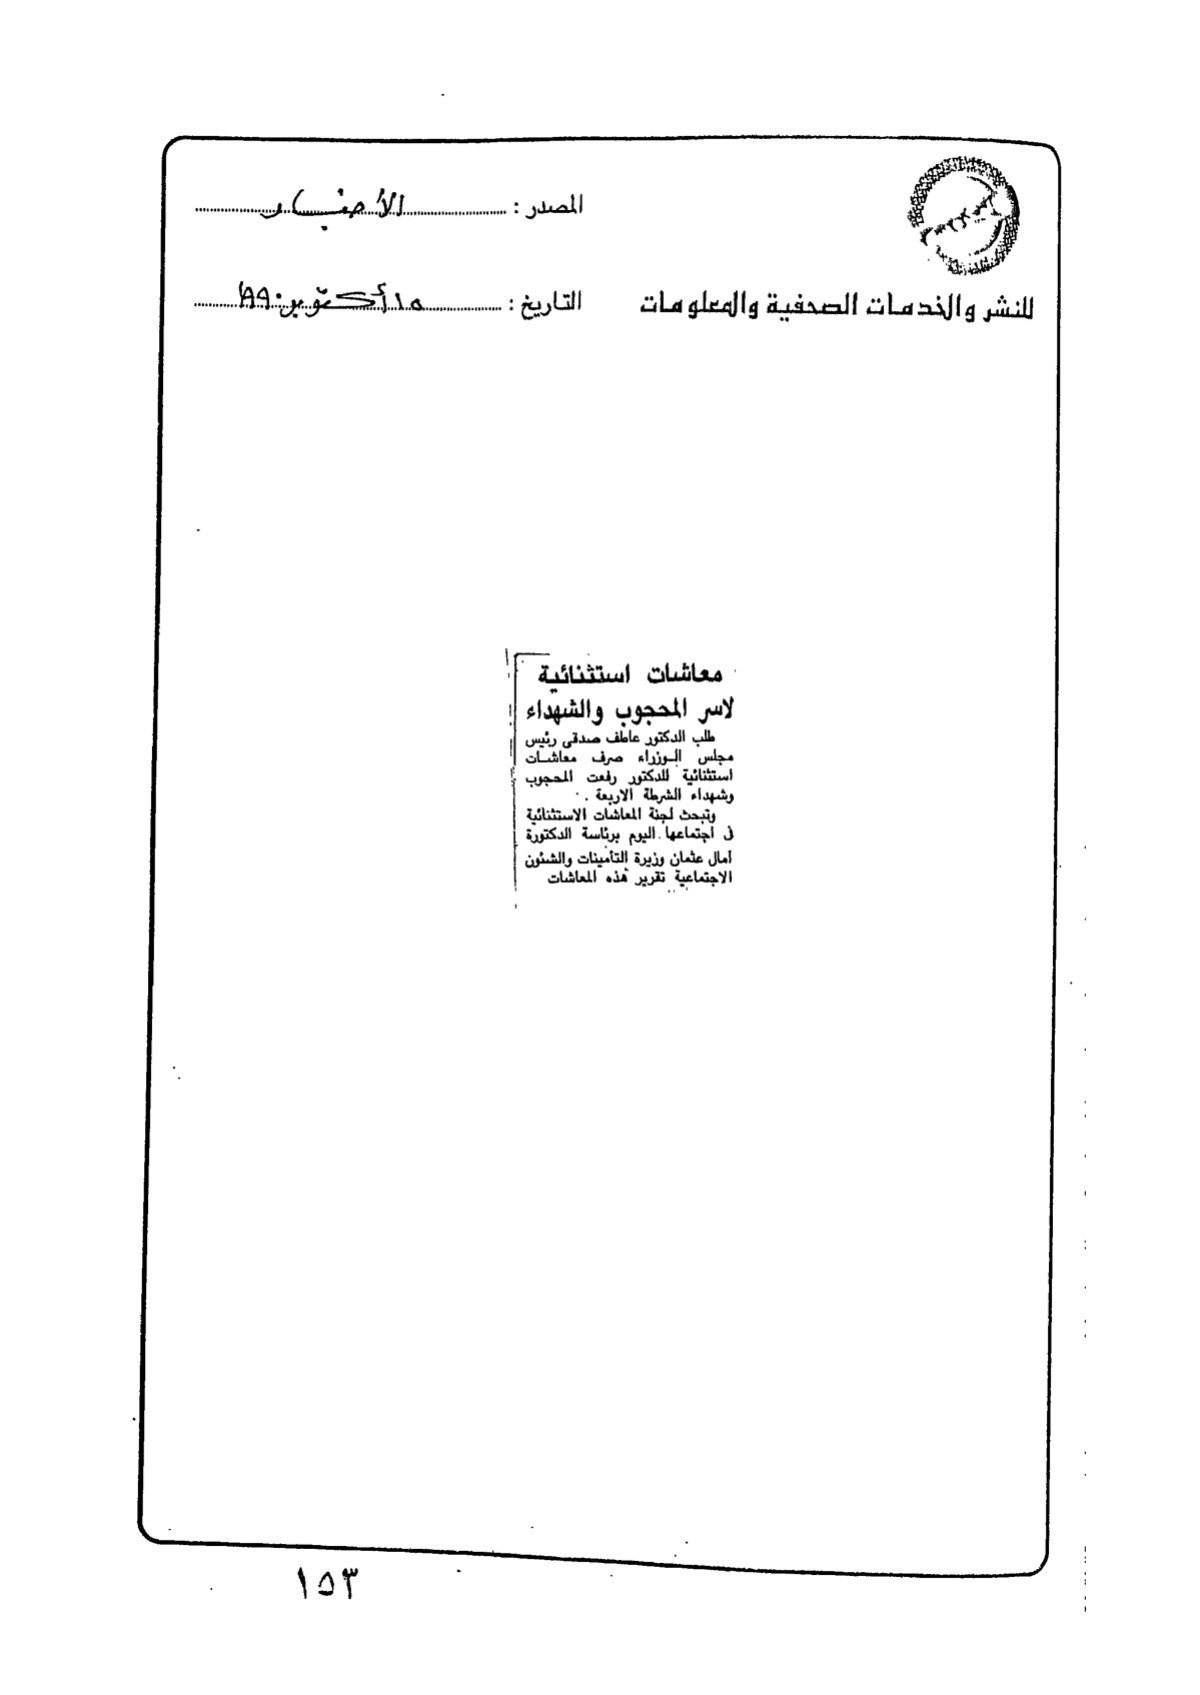 المصدر : الأخبار
للنشر والخدمات الصحفية والمعلومات
التاريخ : ١٥ أكتوبر ١٩٩٠
معاشات استثنائية
لاسر المحجوب والشهداء
طلب الدكتور عاطف صدقى رئيس
مجلس الوزراء صرف معاشات
استثنائية للدكتور رفعت المحجوب
وشهداء الشرطة الاربعة .
وتبحث لجنة المعاشات الاستثنائية
فى اجتماعها اليوم برئاسة الدكتورة
امال عثمان وزيرة التأمينات والشئون
الاجتماعية تقرير هذه المعاشات
١٥٣